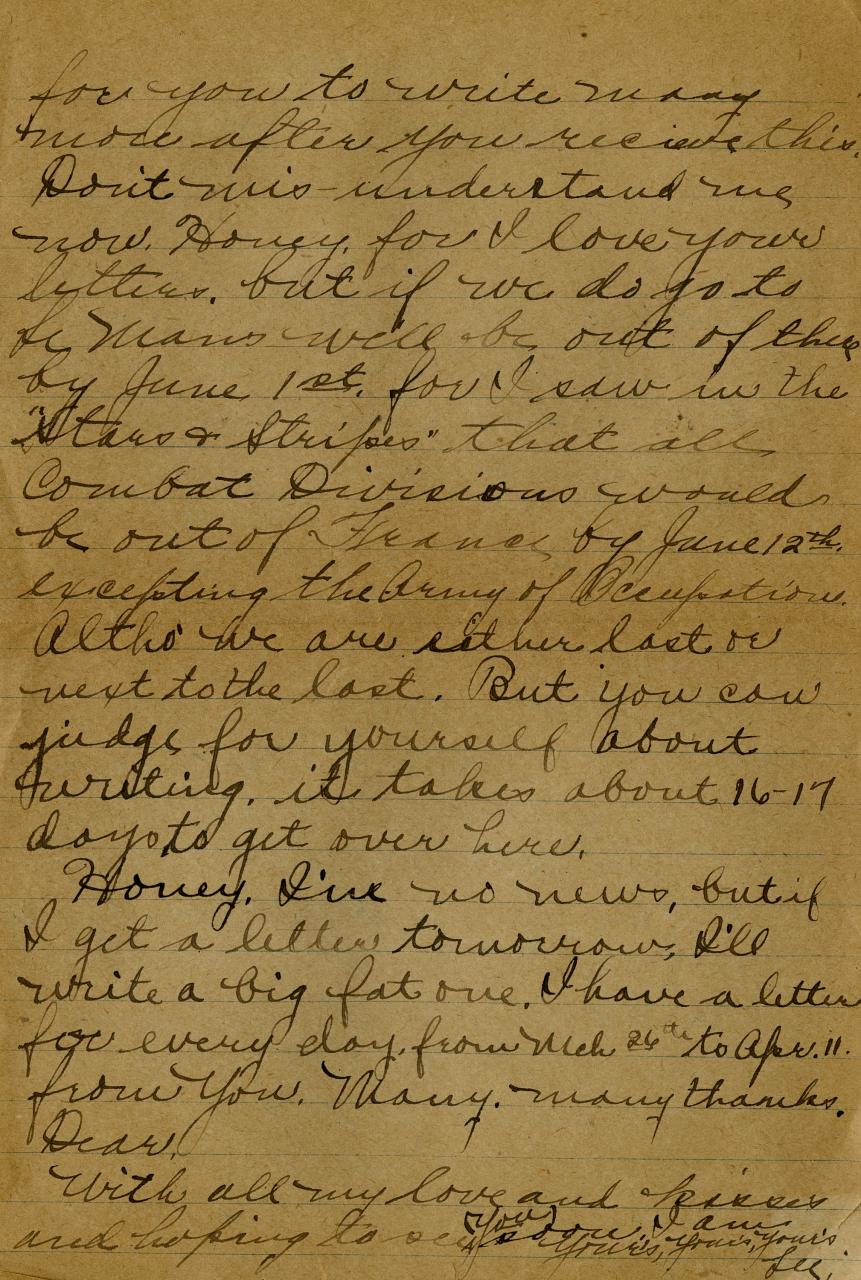 for you to write many
more after you recieve this.
Don't mis-understand me
now. Honey, for I love your
letters. but if we do go to
Le Mans we'll be out of there
by June 1st. for I saw in the
"Stars & Stripes" that all
Combat Divisions would
be out of France by June 12th.
excepting the Army of Occupation.
Altho' we are either last or
next to the last. But you can
judge for yourself about
writing. it takes about 16-17
days to get over here.
Honey, I've no news, but if
I get a letter tomorrow, I'll
write a big fat one. I have a letter
for every day. from Mch 26th to Apr. 11.
from You. Many, many thanks.
Dear.
With all my love and kisses
and hoping to see (you) soon, I am
Your's, your's, your's
Lee.